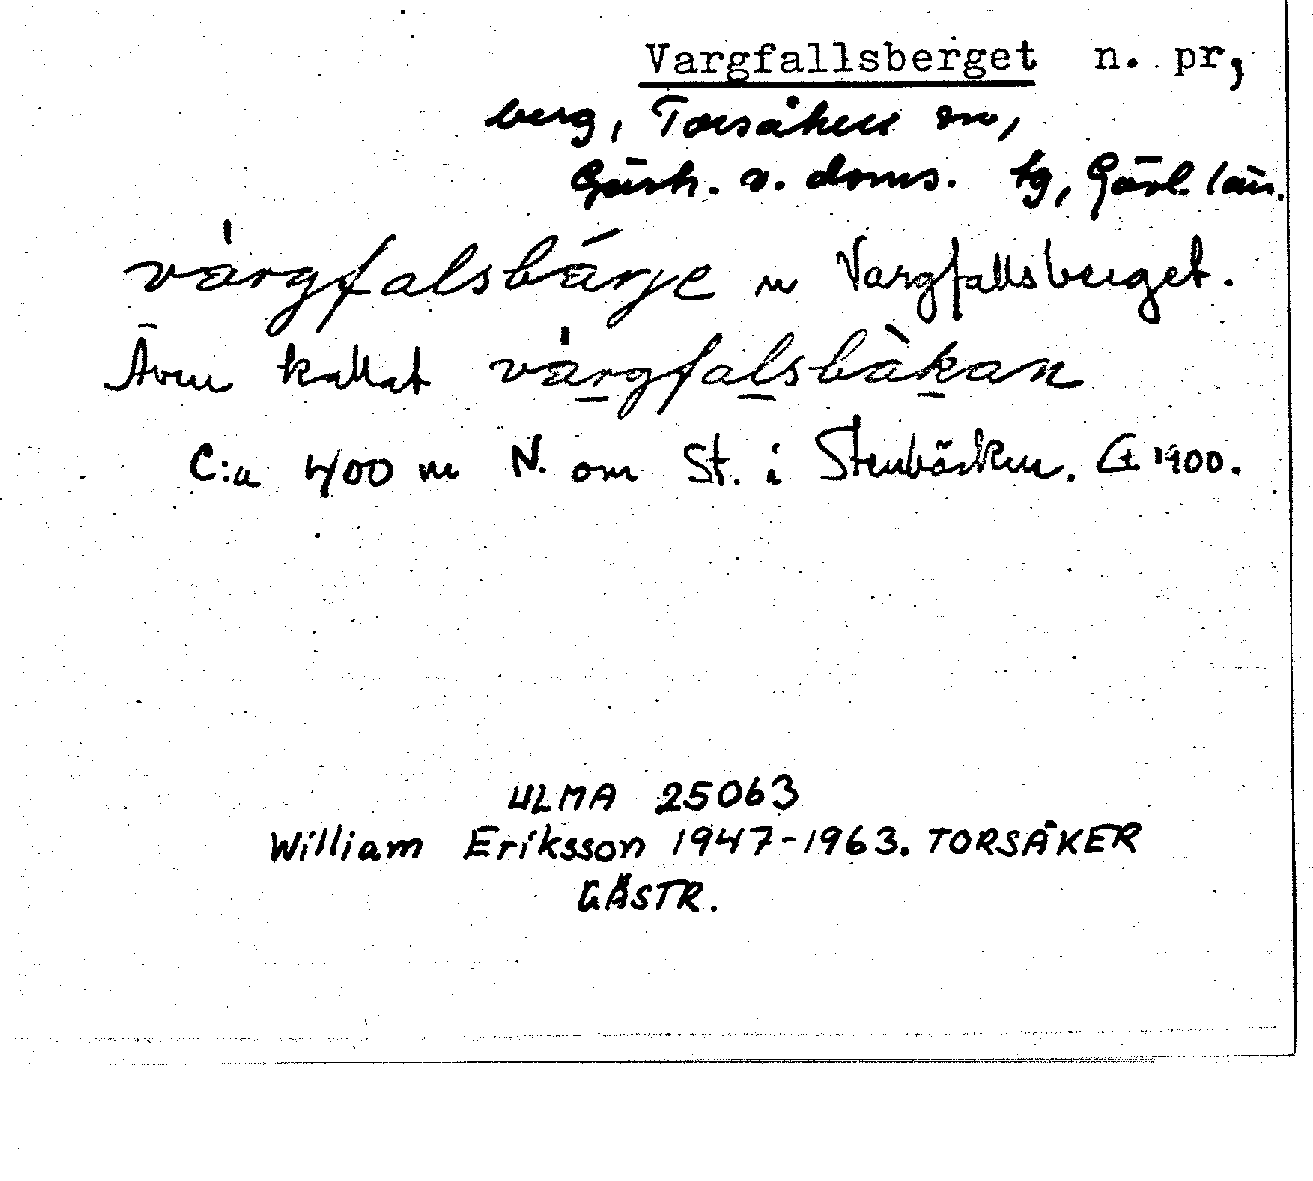 Vargfallsberget n. pr,
berg, Torsåkers sn,
Gästr. v. doms. tg, Gävl. län.
vàrgfalsbárje n Vargfallsberget.
Även kallat vàrgfalsbàkan
C:a 400 m N. om St. i Stenbäcken. 1900.
ULMA 25063
William Eriksson 1947-1963. TORSÅKER
GÄSTR.